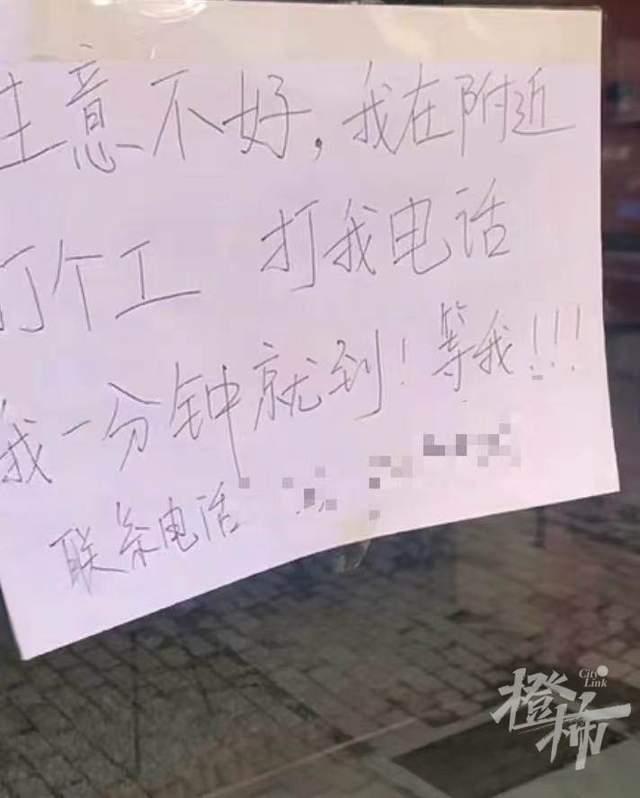 生意不好，我在附近
打个工 打我电话
我一分钟就到！等我！！！
联系电话
City Link
橙柿